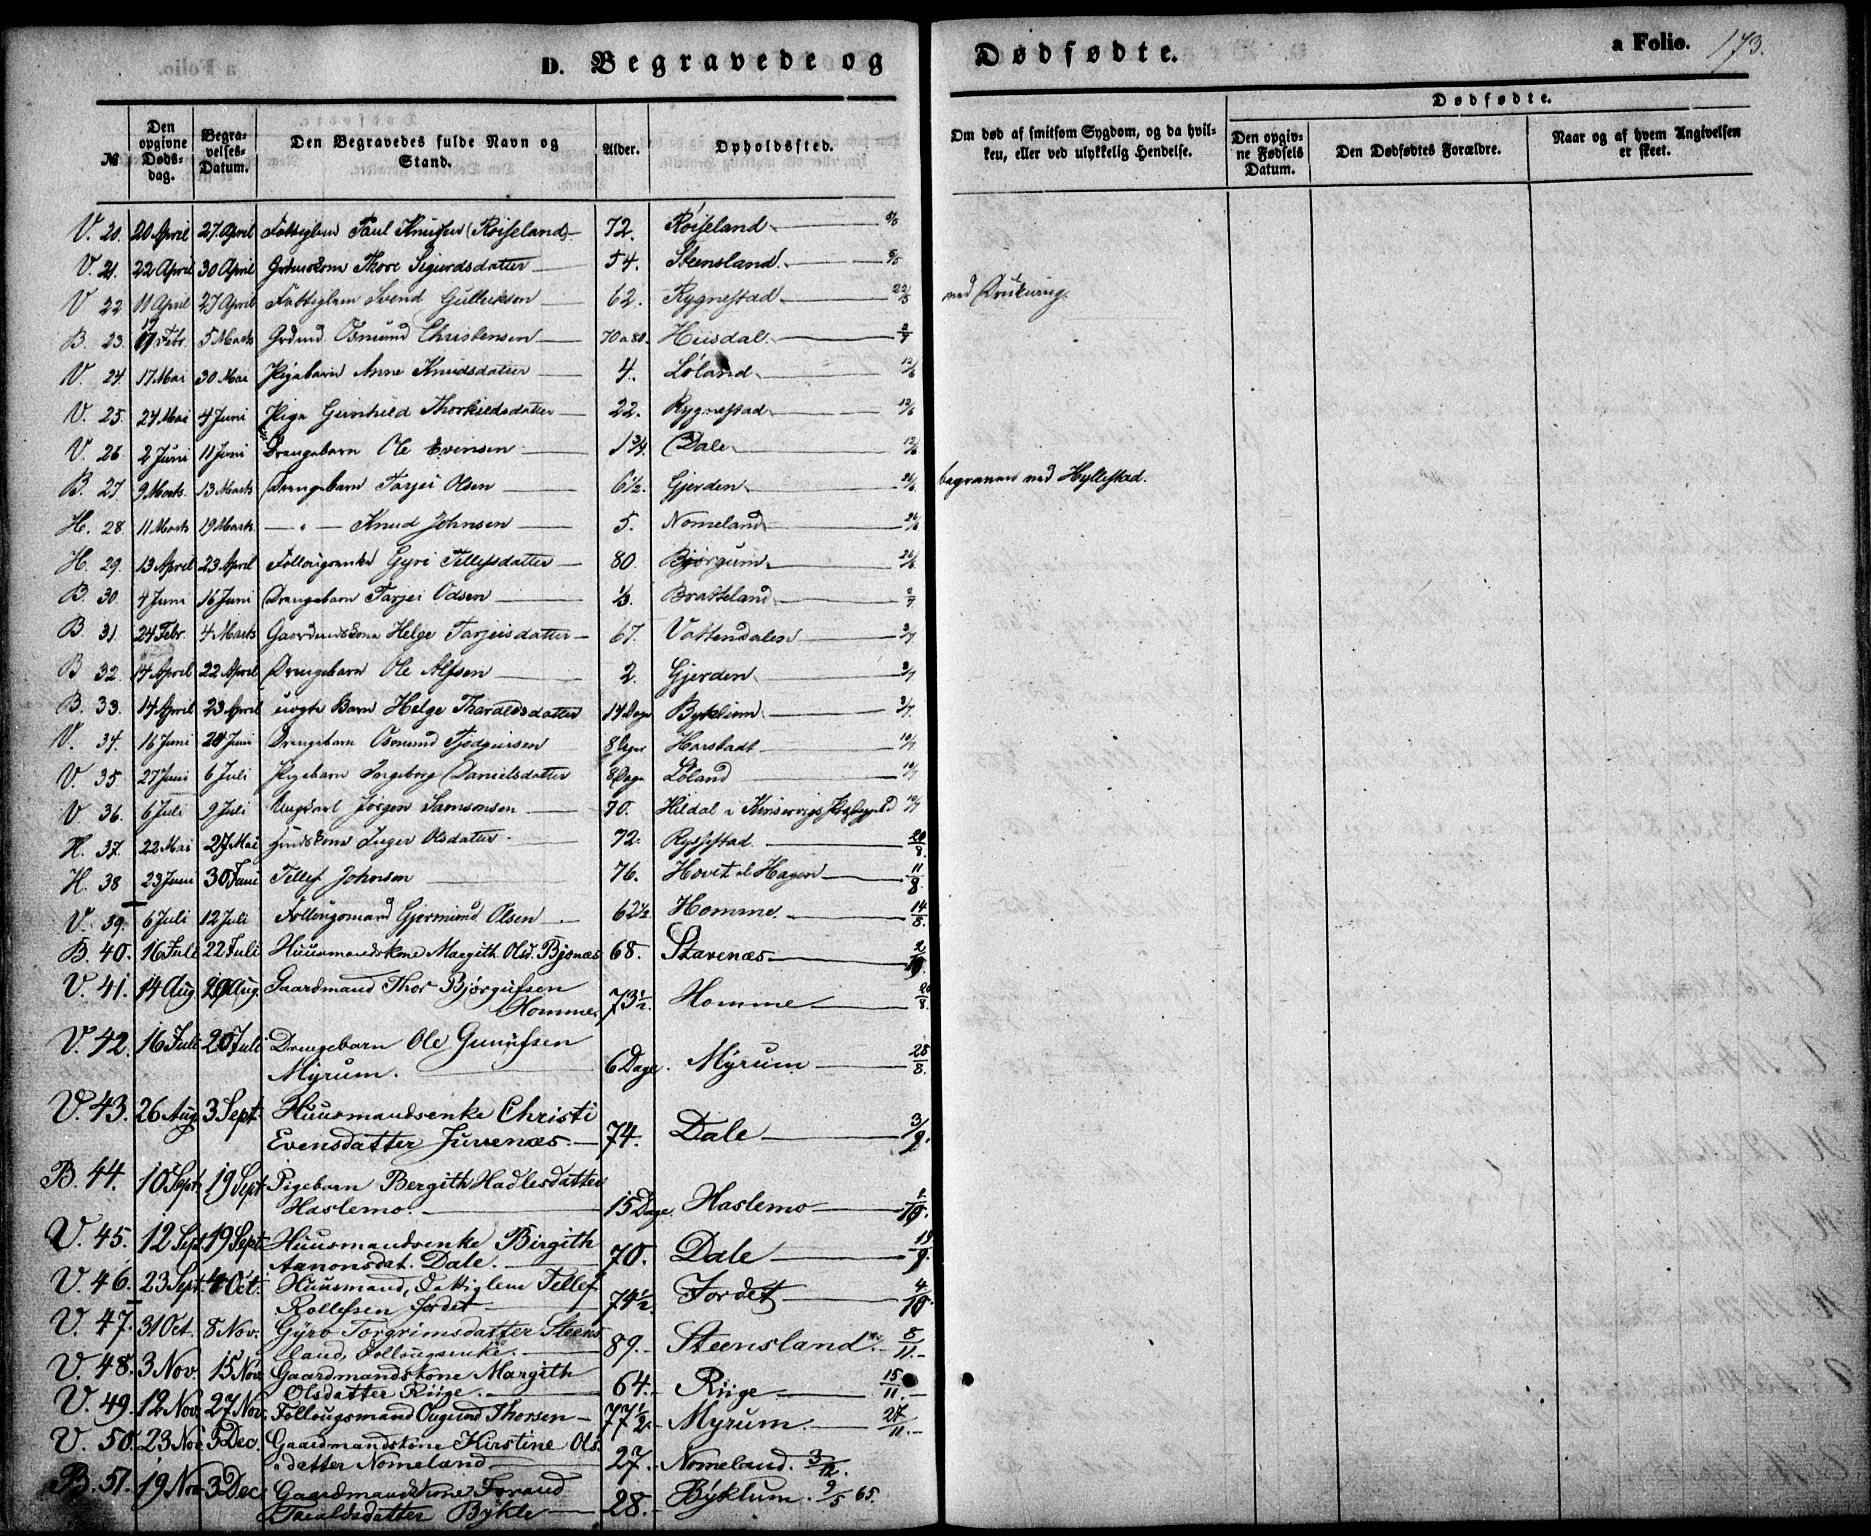 D. Begravede og Dødfødte. a Folio. 173.
№ Den opgivne Døds-dag. Begra-velses-Datum. Den Begravedes fulde Navn og Stand. Alder. Opholdssted. Om død af smitsom Sygdom, og da hvil-ken, eller ved ulykkelig Hendelse. Dødfødte. Den opgiv-ne Fødsels Datum. Den Dødfødtes Forældre. Naar og af hvem Angivelsen er skeet.
V. 20. 20 April 27 April Fattiglem Paul Knudsen (Røiseland) 72. Røiseland
V. 21. 22 April 30 April Thore Sigurdsdatter 54. Steensland.
V 22 11 April 27 April Fattiglem Svend Gulleksen 62. Rygnestad 22/5
B. 23. Febr. 5 Marts Osmund Christensen 70 a 80. Huisdal. 2/7
V. 24. 17 Mai 30 Mai Pigebarn Anne Knudsdatter 4. Løland 12/6
V. 25. 24 Mai 4 Juni Pige Gunhild Thorkildsdatter 22. Rygnestad 12/6
V. 26. 2 Juni 11 Juni Drengebarn Ole Evensen 1 3/4 Dale 12/6
B. 27 9 Marts 13 Marts Drengebarn Tarjei Olsen 6 1/2. Gjerden 26/6 begraven ved Hyllestad.
H. 28 11 Marts 19 Marts — " — Knud Johnsen 5. Nomeland 26/6
H. 29. 13 April 23 April Gyro Tellefsdatter 80. Bjørgum 26/6
B. 30. 4 Juni 16 Juni Drengebarn Tarjei Odsen 1/3. Bratteland 2/7
B. 31. 24 Febr. 4 Marts Gaardmdskone Helge Tarjeisdatter 67. Vattendalen 3/7
B 32. 14 April 22 April Drengebarn Ole Alfsen 2. Gjerden 3/7
B. 33. 14 April 23 April uægte Barn Helge Tharaldsdatter 14 Dage Byklum 3/7
V. 34. 16 Juni 24 Juni Drengebarn Osmund 8 Dage Harstadt 10/7
V. 35 27 Juni 6 Juli Pigebarn Ingeborg Danielsdatter 8 Dage Løland 10/7
V 36. 6 Juli 9 Juli Ungkarl Jørgen Samsonsen 70. Hildal i Kinservigs 10/7
H. 37. 22 Mai 27 Mai Olsdatter 72. Rysstad 20/8.
H. 38 23 Juni 30 Juni Tellef Johnsen 76. Hovet Hagen 11/8
V. 39. 6 Juli 12 Juli Follougsmand Gjermund Olsen 62 1/2 Homme. 14/8
B. 40. 16 Juli 22 Juli Huusmandskone Margith Olsd. Bjønæs 68. Stavenæs 2/10.
V. 41. 14 Aug 20 Aug. Gaardmand Thor Bjørgufsen
Homme. 73 1/2. Homme 20/8.
V. 42. 16 Juli 20 Juli Drengebarn Ole Gunufsen
Myrum. 6 Dage. Myrum 28/8.
V. 43. 26 Aug 3 Sept. Huusmandsenke Christi
Evensdatter Juvenæs 74. Dale 3/9.
B. 44. 10 Sept. 19 Sept Pigebarn Bergith Hadlesdatter
Haslemo. 15 Dage. Haslemo 1/10.
V. 45. 12 Sept 19 Sept. Huusmandsenke Birgith
Aanonsdat. Dale. 70. Dale 19/9.
V. 46. 23 Sept. 4 Oct. Huusmand, Fattiglem Tellef
Rollefsen Jordet 74 1/2. Jordet 4/10.
V. 47. 31 Oct. 8 Nov. Gyro Torgrimsdatter Steens
land, Follougsenke. 89. Steensland. 8/11.
V. 48. 3 Nov. 15 Nov Gaardmandskone Margith
Olsdatter Riige. 64. Riige 15/11.
V. 49. 12 Nov 27 Nov. Follougsmand Augund Thorsen 77 1/2. Myrum. 27/11.
V. 50. 23 Nov. 3 Dec. Gaardmandskone Kirstine Ols
datter Nomeland 27. Nomeland. 3/12.
B. 51. 19 Nov 3 Dec Gaardmandskone Torand
Taraldsdatter Bykle 28. Byklum. 9/5 65.